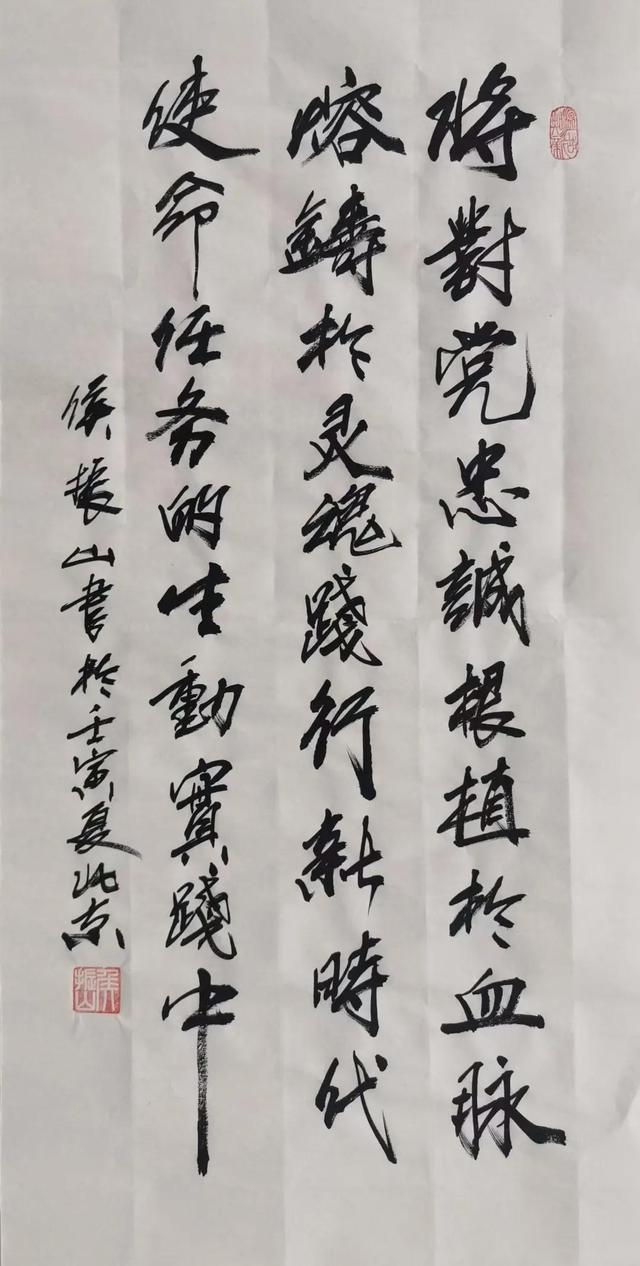 将對党忠誠根植於血脉
熔鑄於灵魂踐行新時代
使命任务的生動實踐中
侯振山書於壬寅夏北京